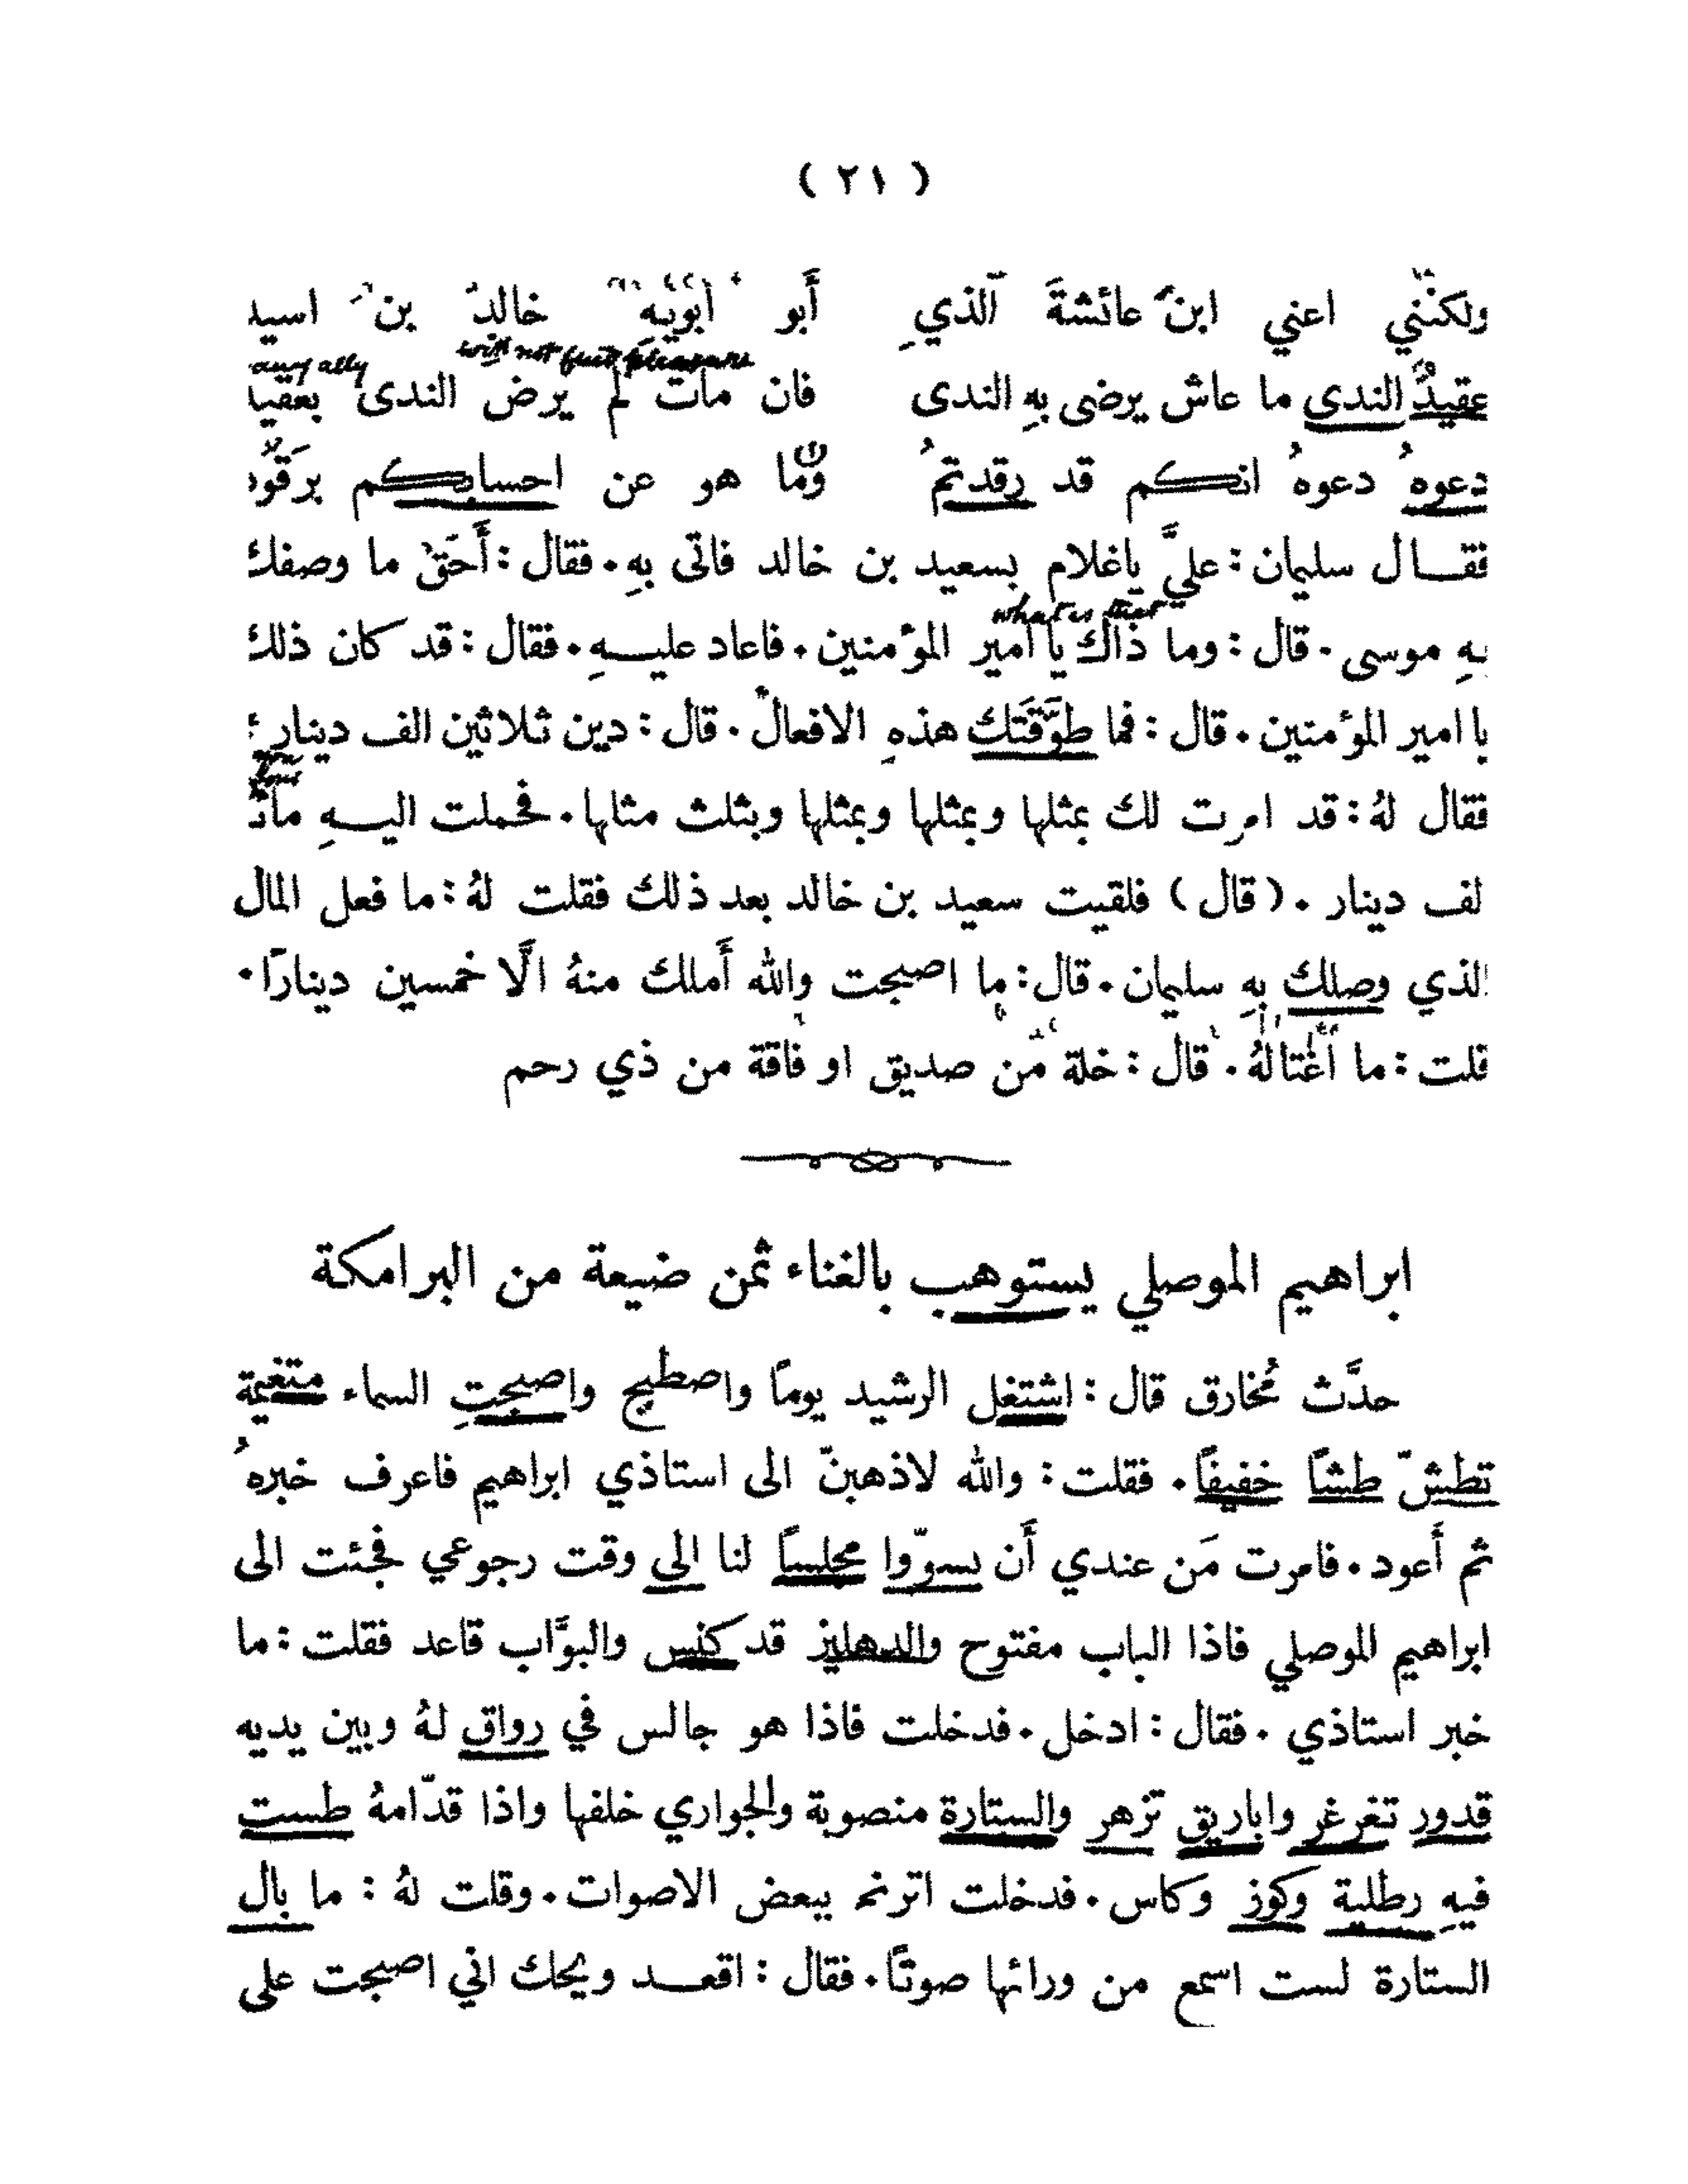 ( ٢١ )
ولكنّني اعني ابن عائشةَ الذي أبو ابويهِ خالدُ بن اسيد
any ally will not find pleasure
عقيدُ الندى ما عاش يرضى بهِ الندى فان مات لم يرض الندى بعقيد
دعوهُ دعوهُ انكم قد رقدتمُ وما هو عن احسابكم برقود
فقال سليمان : عليَّ ياغلام بسعيد بن خالد فاتى بهِ . فقال : أَحَقٌ ما وصفك
بهِ موسى . قال : وما ذاك يا امير المؤمنين . فاعاد عليهِ . فقال : قد كان ذلك
what is that
يا امير المؤمنين . قال : فما طوَّقَتك هذهِ الافعال . قال : دين ثلاثين الف دينار
فقال لهُ : قد امرت لك بمثلها وبمثلها وبمثلها وبثلث مثلها . فحملت اليهِ مائة
الف دينار . ( قال ) فلقيت سعيد بن خالد بعد ذلك فقلت لهُ : ما فعل المال
الذي وصلك بهِ سليمان . قال : ما اصبحت والله أَملك منهُ الَّا خمسين دينارًا .
قلت : ما اغتالهُ . قال : خلة من صديق او فاقة من ذي رحم
ابراهيم الموصلي يستوهب بالغناء ثمن ضيعة من البرامكة
حدَّث مُخارق قال : اشتغل الرشيد يومًا واصطبح واصبحتِ السماء متغيمة
تطشّ طشًا خفيفًا . فقلت : والله لاذهبنّ الى استاذي ابراهيم فاعرف خبرهُ
ثم أَعود . فامرت مَن عندي أَن يسوّوا مجلسًا لنا الى وقت رجوعي فجئت الى
ابراهيم الموصلي فاذا الباب مفتوح والدهليز قد كنس والبوَّاب قاعد فقلت : ما
خبر استاذي . فقال : ادخل . فدخلت فاذا هو جالس في رواق لهُ وبين يديه
قدور تغرغر واباريق تزهر والستارة منصوبة والجواري خلفها واذا قدّامهُ طست
فيهِ رطلية وكوز وكاس . فدخلت اترنم ببعض الاصوات . وقلت لهُ : ما بال
الستارة لست اسمع من ورائها صوتًا . فقال : اقعد ويحك اني اصبحت على